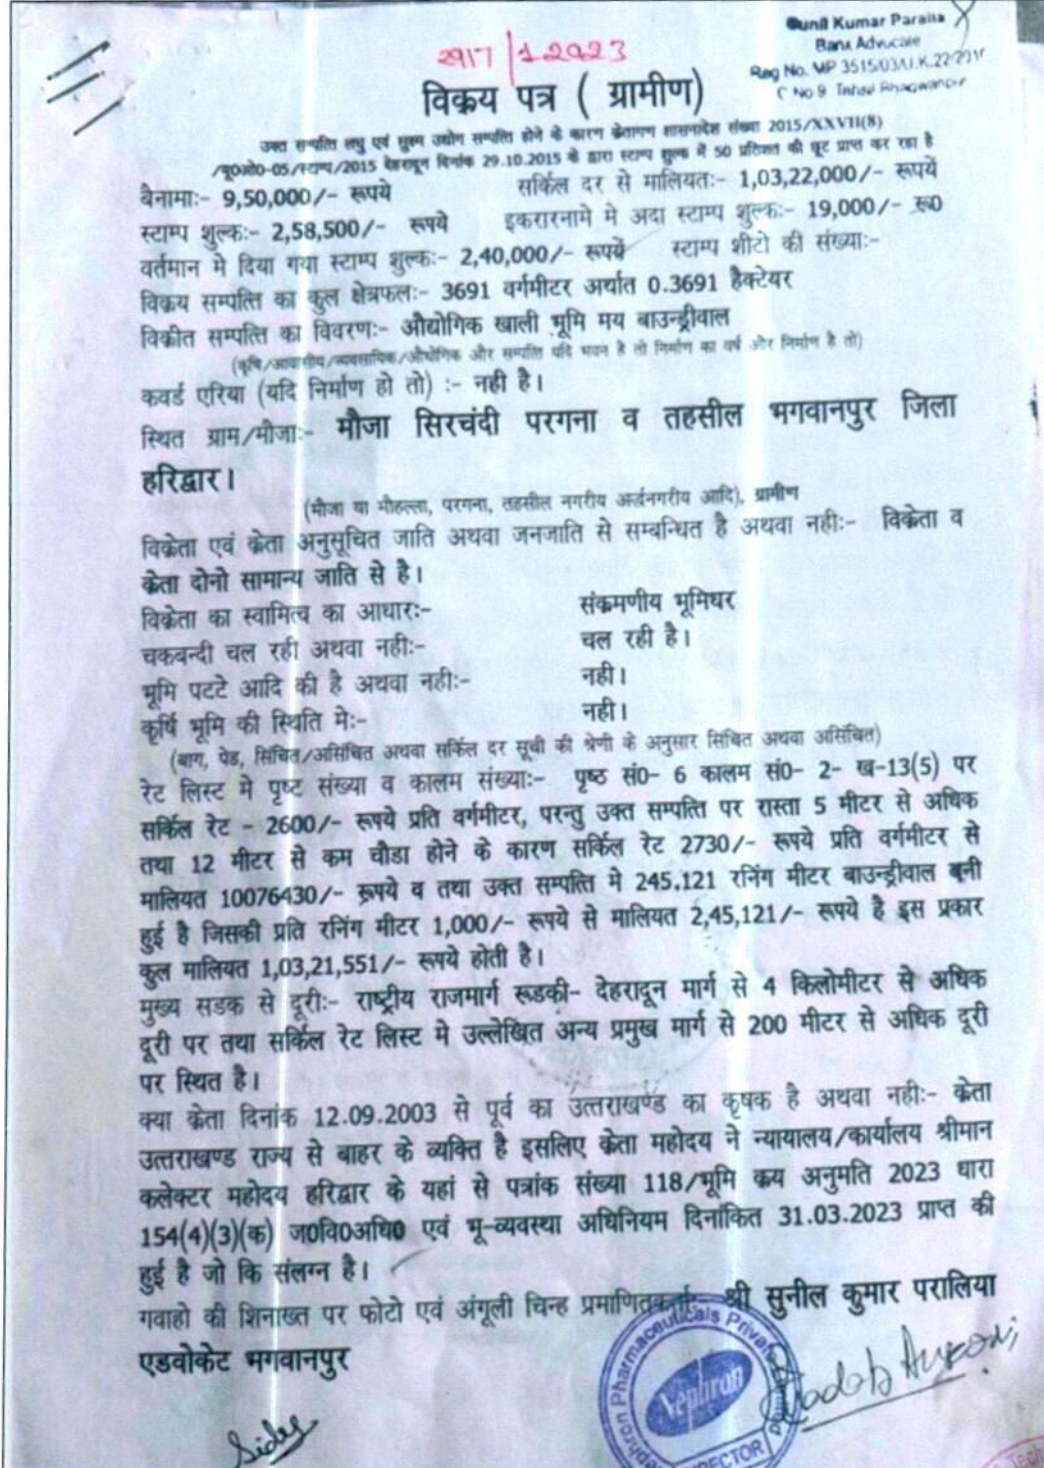 Sunil Kumar Paralia
Advocate
Reg No. MP 3515/03/U.K.22/
C No 9 Tehsil Bhagwanpur
2917/12023
विक्रय पत्र ( ग्रामीण)
उक्त सम्पत्ति लघु एवं सुक्ष्म उद्योग सम्पत्ति होने के कारण क्रेतागण शासनादेश संख्या 2015/XXVII(8)
/यू0ओ0-05/स्टाम्प/2015 देहरादून दिनांक 29.10.2015 के द्वारा स्टाम्प शुल्क में 50 प्रतिशत की छूट प्राप्त कर रहा है
बैनामाः- 9,50,000/- रूपये सर्किल दर से मालियतः- 1,03,22,000/- रूपयें
स्टाम्प शुल्कः- 2,58,500/- रूपये इकरारनामे मे अदा स्टाम्प शुल्कः- 19,000/- रू0
वर्तमान मे दिया गया स्टाम्प शुल्कः- 2,40,000/- रूपयें स्टाम्प शीटो की संख्याः-
विक्रय सम्पत्ति का कुल क्षेत्रफलः- 3691 वर्गमीटर अर्थात 0.3691 हैक्टेयर
विक्रीत सम्पत्ति का विवरणः- औद्योगिक खाली भूमि मय बाउन्ड्रीवाल
(कृषि/आवासीय/व्यवसायिक/औधोगिक और सम्पति यदि भवन है तो निर्माण का वर्ष और निर्माण है तो)
कवर्ड एरिया (यदि निर्माण हो तो) :- नही है।
स्थित ग्राम/मौजाः- मौजा सिरचंदी परगना व तहसील भगवानपुर जिला
हरिद्वार।
(मौजा या मौहल्ला, परगना, तहसील नगरीय अर्द्धनगरीय आदि), ग्रामीण
विक्रेता एवं क्रेता अनुसूचित जाति अथवा जनजाति से सम्बन्धित है अथवा नहीः- विक्रेता व
क्रेता दोनो सामान्य जाति से है।
विक्रेता का स्वामित्व का आधारः- संक्रमणीय भूमिधर
चकबन्दी चल रही अथवा नहीः- चल रही है।
भूमि पटटे आदि की है अथवा नहीः- नही।
कृर्षि भूमि की स्थिति मेः- नही।
(बाग, पेड, सिंचित/असिंचित अथवा सर्किल दर सूची की श्रेणी के अनुसार सिंचित अथवा असिंचित)
रेट लिस्ट मे पृष्ट संख्या व कालम संख्याः- पृष्ठ सं0- 6 कालम सं0- 2- ख-13(5) पर
सर्किल रेट - 2600/- रूपये प्रति वर्गमीटर, परन्तु उक्त सम्पत्ति पर रास्ता 5 मीटर से अधिक
तथा 12 मीटर से कम चौडा होने के कारण सर्किल रेट 2730/- रूपये प्रति वर्गमीटर से
मालियत 10076430/- रूपये व तथा उक्त सम्पत्ति मे 245.121 रनिंग मीटर बाउन्ड्रीवाल बनी
हुई है जिसकी प्रति रनिंग मीटर 1,000/- रूपये से मालियत 2,45,121/- रूपये है इस प्रकार
कुल मालियत 1,03,21,551/- रूपये होती है।
मुख्य सडक से दूरीः- राष्ट्रीय राजमार्ग रूडकी- देहरादून मार्ग से 4 किलोमीटर से अधिक
दूरी पर तथा सर्किल रेट लिस्ट मे उल्लेखित अन्य प्रमुख मार्ग से 200 मीटर से अधिक दूरी
पर स्थित है।
क्या क्रेता दिनांक 12.09.2003 से पूर्व का उत्तराखण्ड का कृषक है अथवा नहीः- क्रेता
उत्तराखण्ड राज्य से बाहर के व्यक्ति है इसलिए क्रेता महोदय ने न्यायालय/कार्यालय श्रीमान
कलेक्टर महोदय हरिद्वार के यहां से पत्रांक संख्या 118/भूमि क्रय अनुमति 2023 धारा
154(4)(3)(क) ज0वि0अधि0 एवं भू-व्यवस्था अधिनियम दिनांकित 31.03.2023 प्राप्त की
हुई है जो कि संलग्न है।
गवाहो की शिनाख्त पर फोटो एवं अंगूली चिन्ह प्रमाणितकर्ताः- श्री सुनील कुमार परालिया
एडवोकेट भगवानपुर
Nephron Pharmaceuticals Private
Nephron
DIRECTOR
Tech